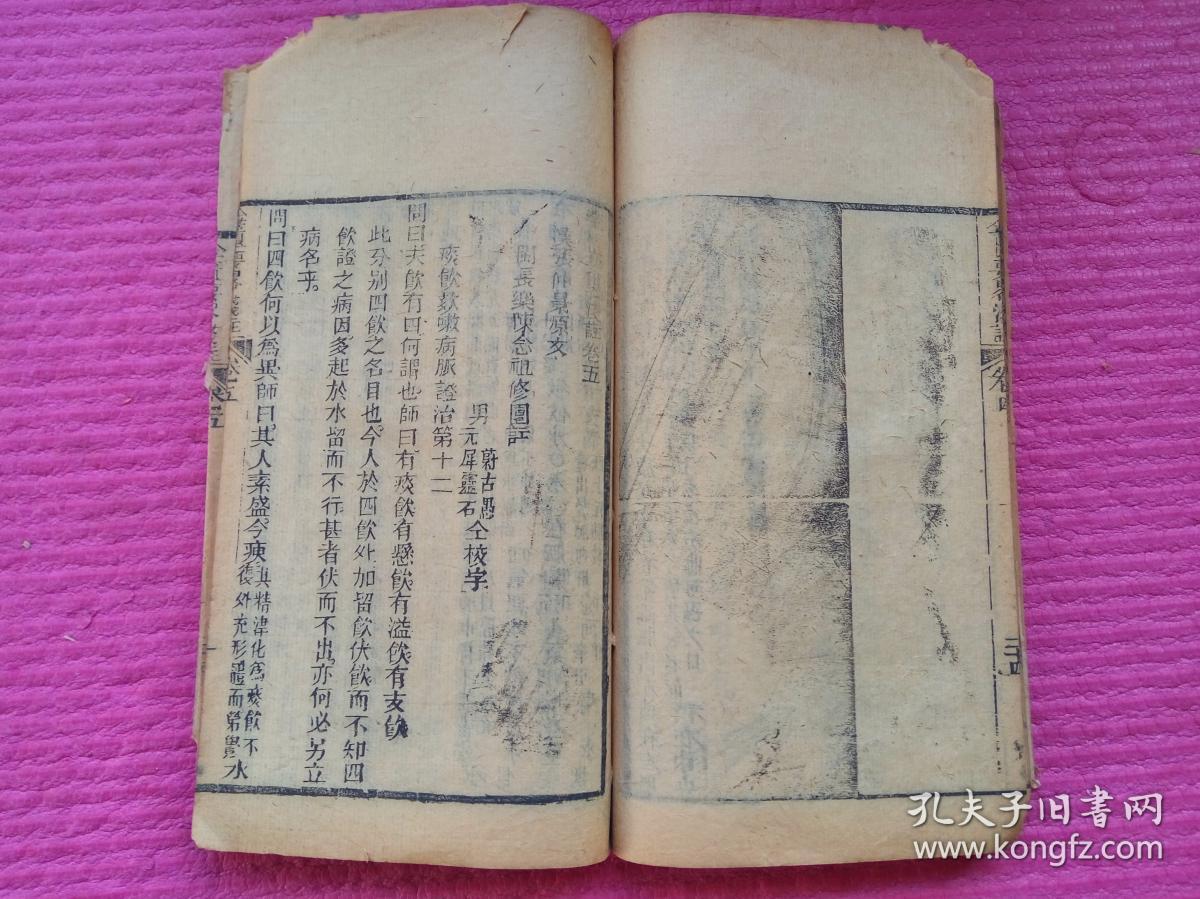 卷四
註卷五
漢張仲景原文
閩長樂陳念祖修園註
男
蔚古愚
元犀靈石
仝校字
痰飲欬嗽病脈證治第十二
問曰夫飲有四何謂也師曰有痰飲有懸飲有溢飲有支飲
此分別四飲之名目也今人於四飲外加留飲伏飲而不知四
飲證之病因多起於水留而不行甚者伏而不出亦何必另立
病名乎。
問曰四飲何以爲異師曰其人素盛今瘐
其精津化爲痰飲不
復外充形體而第覺
水
卷五
孔夫子旧书网
www.kongfz.com